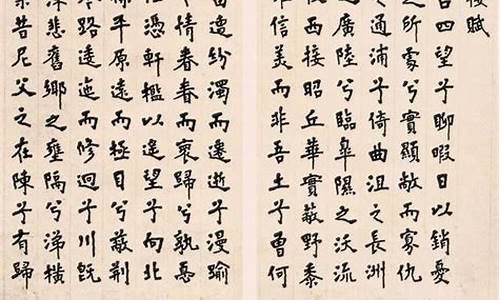 樓賦
㠯四望兮聊暇日以銷憂
之所處兮實顯敞而寡仇
之通浦兮倚曲沮之長洲
之廣陸兮臨皋隰之沃流
牧西接昭丘華實蔽野黍
信美而非吾土兮曾何
遭紛濁而遷逝兮漫踰
情眷眷而懷歸兮孰憂
憑軒檻以遙望兮向北
襟平原遠而極目兮蔽荊
岑路逶迤而修迥兮川既
深悲舊鄉之壅隔兮涕橫
禁昔尼父之在陳兮有歸